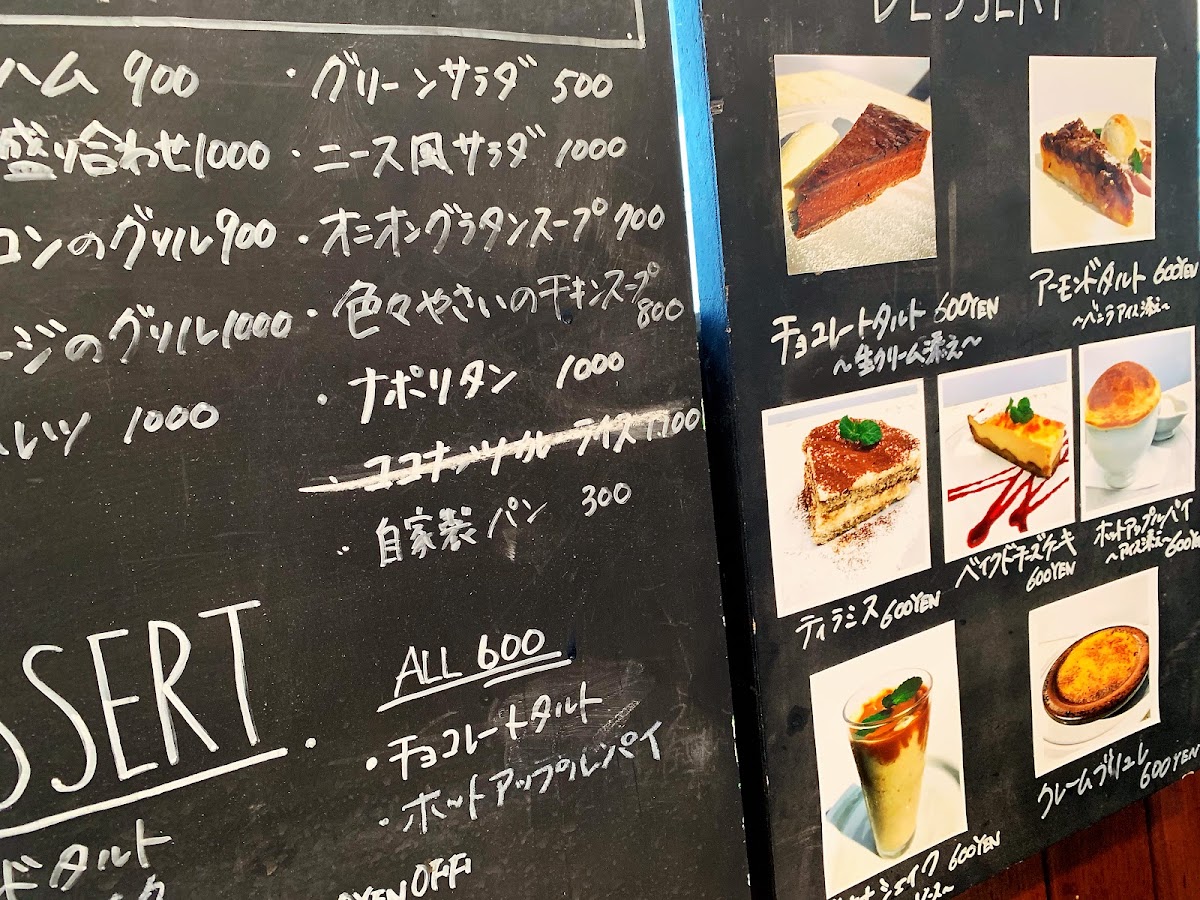 ハム 900
盛り合わせ 1000
コンのグリル 900
ージのグリル 1000
レツ 1000
・グリーンサラダ 500
・ニース風サラダ 1000
・オニオングラタンスープ 700
・色々やさいのチキンスープ
800
・ナポリタン 1000
・自家製パン 300
SSERT.
ドタルト
ALL 600
・チョコレートタルト
・ホットアップルパイ
YEN OFF!
DESSERT
チョコレートタルト 600YEN
〜生クリーム添え〜
アーモンドタルト 600YEN
〜バニラアイス添え〜
ティラミス 600YEN
ベイクドチーズケーキ
600YEN
ホットアップルパイ
〜アイス添え〜 600YE
シェイク 600YEN
ソース〜
クレームブリュレ
600YEN